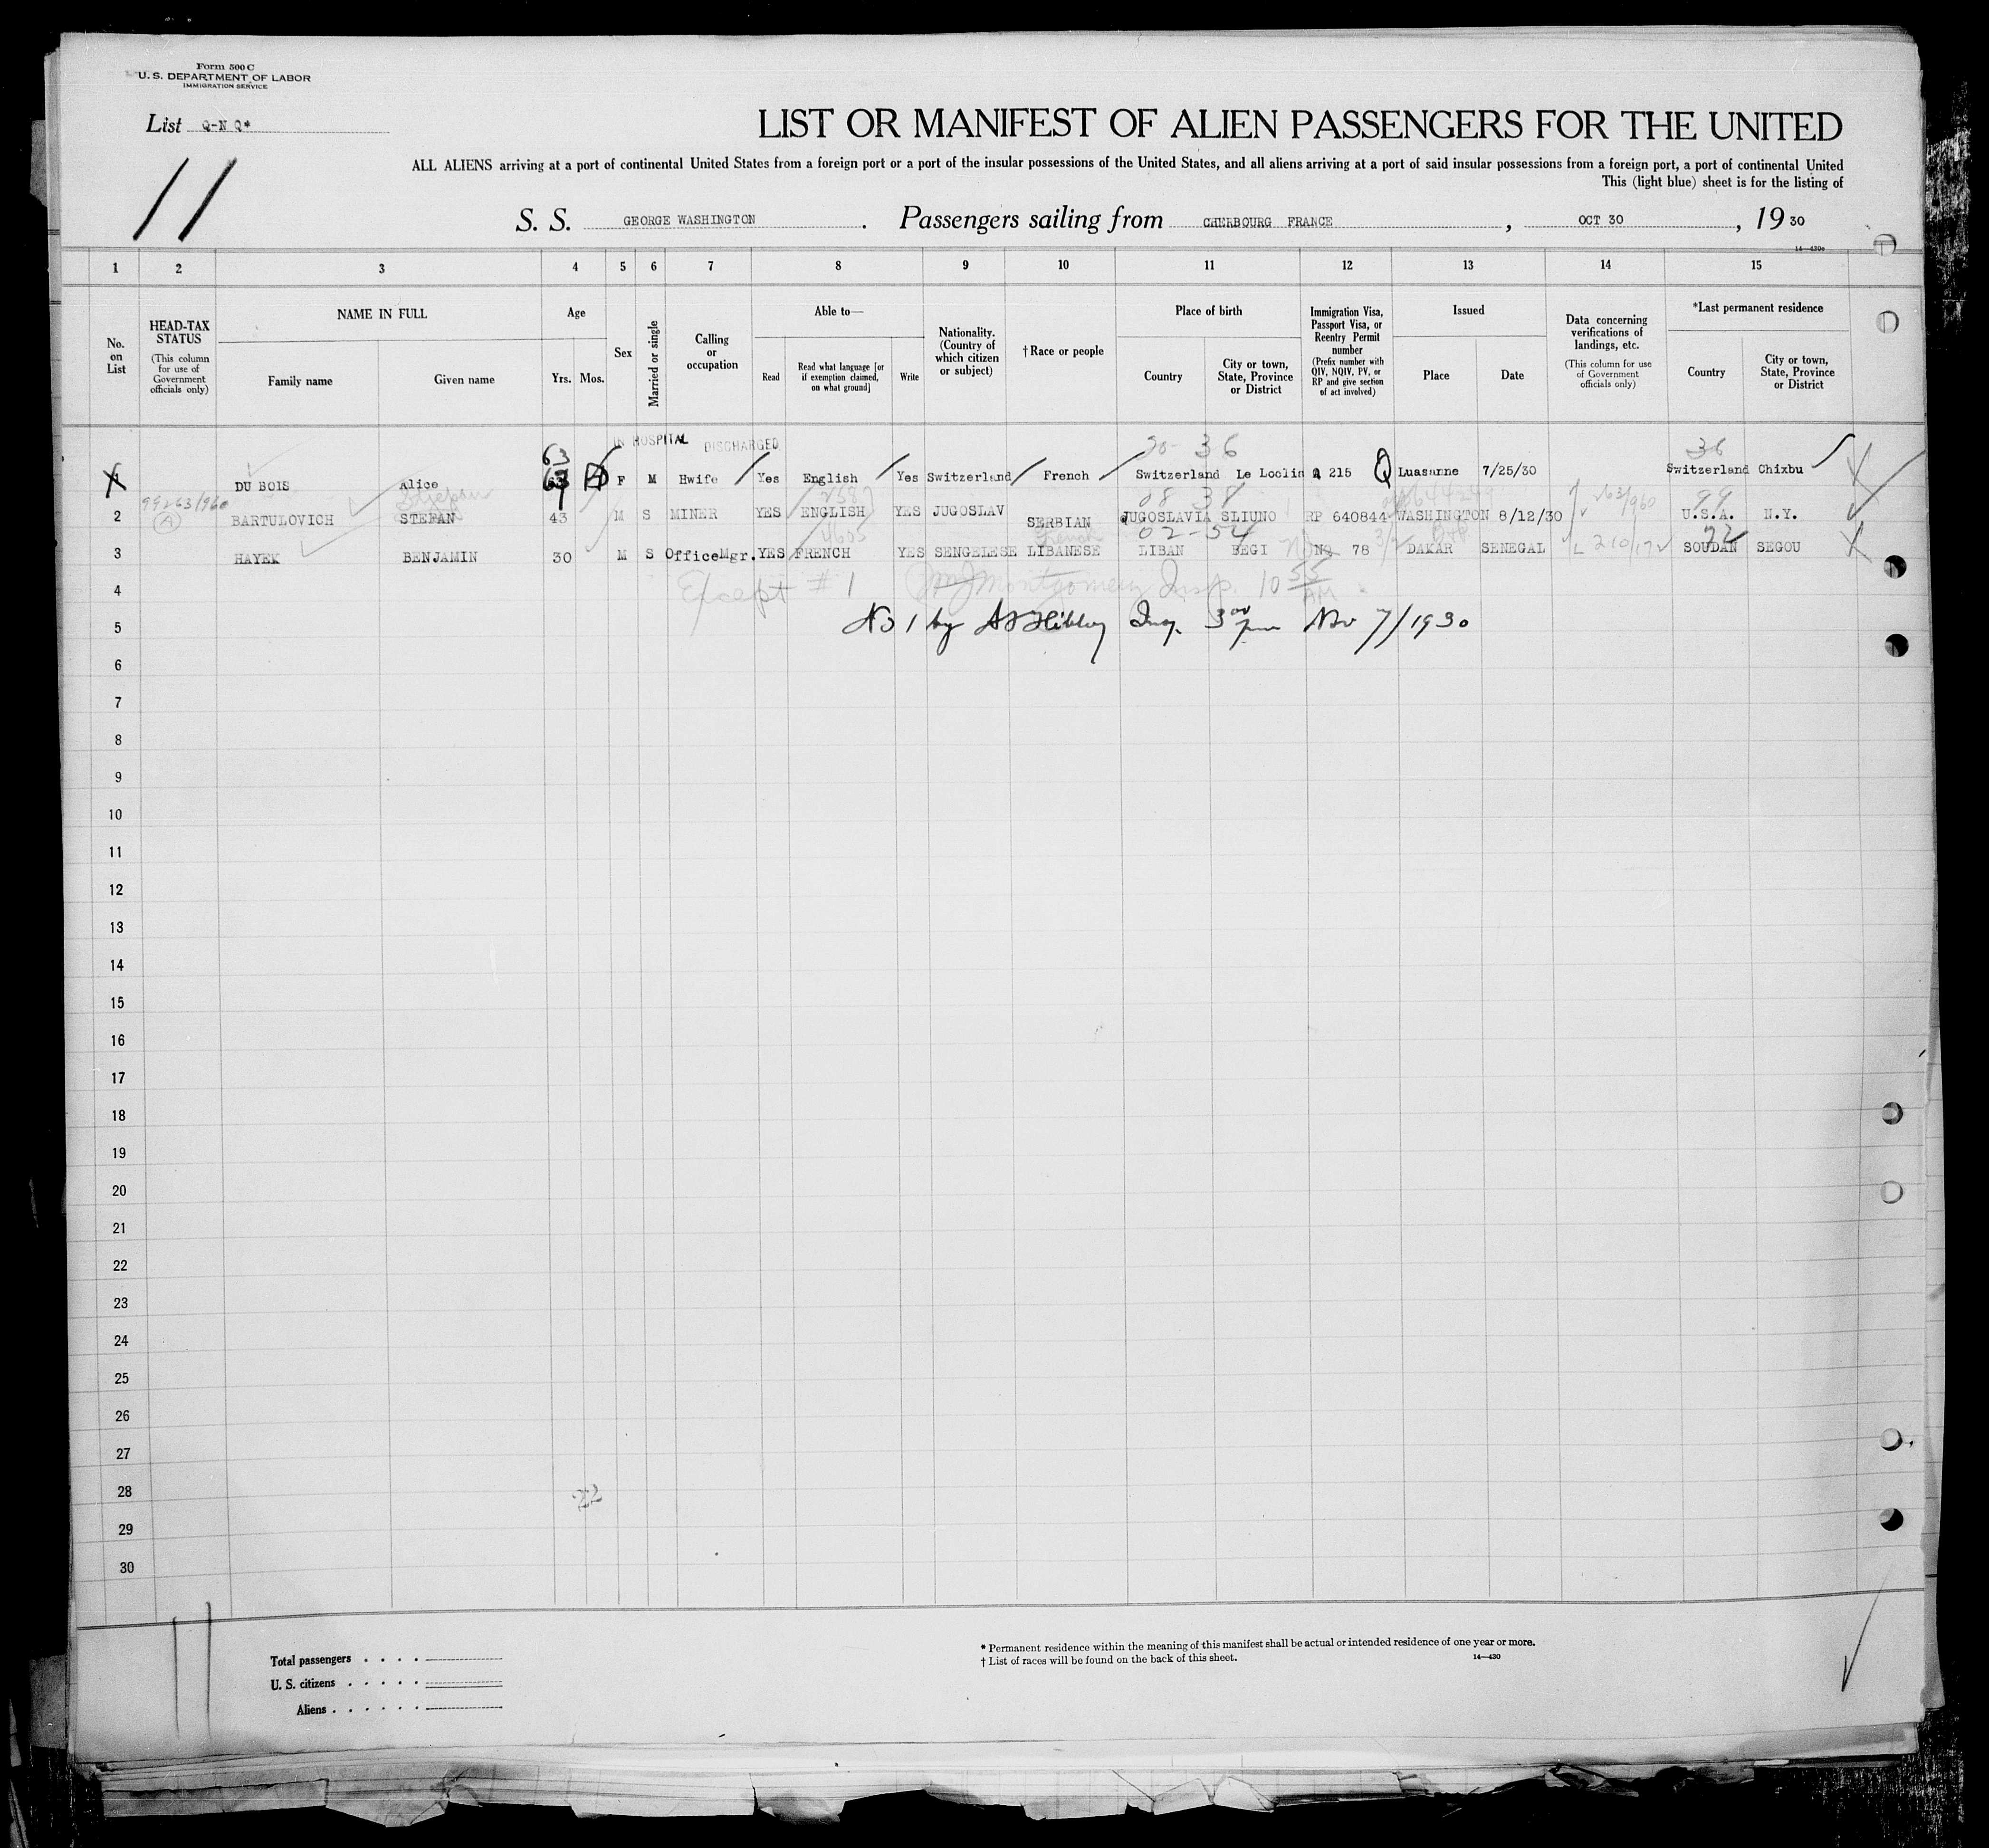 Form 500 C
U. S. DEPARTMENT OF LABOR
IMMIGRATION SERVICE
List Q-N Q*
11
LIST OR MANIFEST OF ALIEN PASSENGERS FOR THE UNITED
ALL ALIENS arriving at a port of continental United States from a foreign port or a port of the insular possessions of the United States, and all aliens arriving at a port of said insular possessions from a foreign port, a port of continental United
This (light blue) sheet is for the listing of
S. S. GEORGE WASHINGTON . Passengers sailing from CHERBOURG FRANCE , OCT 30 , 19 30
14—430c
1 2 3 4 5 6 7 8 9 10 11 12 13 14 15
No. on List
HEAD-TAX STATUS (This column for use of Government officials only)
NAME IN FULL
Family name
Given name
Age
Yrs. Mos.
Sex
Married or single
Calling or occupation
Able to—
Read
Read what language [or if exemption claimed, on what ground]
Write
Nationality. (Country of which citizen or subject)
†Race or people
Place of birth
Country
City or town, State, Province or District
Immigration Visa, Passport Visa, or Reentry Permit number (Prefix number with QIV, NQIV, PV, or RP and give section of act involved)
Issued
Place
Date
Data concerning verifications of landings, etc. (This column for use of Government officials only)
*Last permanent residence
Country
City or town, State, Province or District
IN HOSPITAL DISCHARGED
63 36 36
DU BOIS Alice F M Hwife Yes English Yes Switzerland French Switzerland Le Loclin Q 215 Q Luasanne 7/25/30 Switzerland Chixbu
99263/960 08 37 99
2 (A) BARTULOVICH STEFAN 43 M S MINER YES ENGLISH YES JUGOSLAV SERBIAN JUGOSLAVIA SLIUNO RP 640844 WASHINGTON 8/12/30 U.S.A. N.Y.
4605 French 02-54 72
3 HAYEK BENJAMIN 30 M S OfficeMgr. YES FRENCH YES SENGELESE LIBANESE LIBAN BEGI NQ 78 DAKAR SENEGAL SOUDAN SEGOU
4 Except # 1 Montgomery Insp. 10 55 AM
5 No 1 by Insp. 3 00 pm Nov 7/1930
6
7
8
9
10
11
12
13
14
15
16
17
18
19
20
21
22
23
24
25
26
27
28 22
29
30
11
Total passengers . . . .
U. S. citizens . . . . .
Aliens . . . . . .
* Permanent residence within the meaning of this manifest shall be actual or intended residence of one year or more.
† List of races will be found on the back of this sheet.
14—430